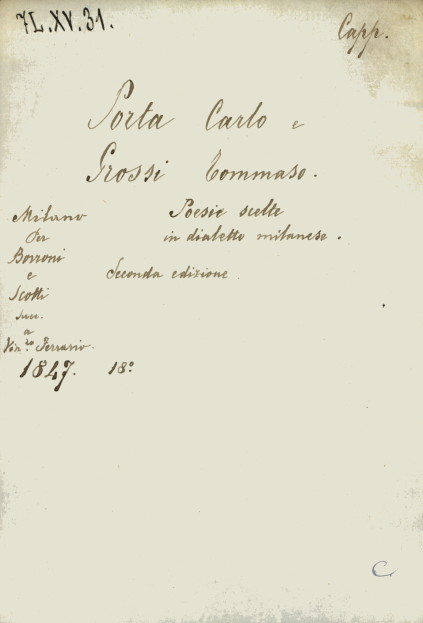 7L.XV.31.
Capp.
Porta Carlo e
Grossi Tommaso.
Poesie scelte
in dialetto milanese.
Seconda edizione.
Milano
Per
Borroni
e
Scotti
succ.
a
Vin.zo Ferrario.
1847. 18º
C